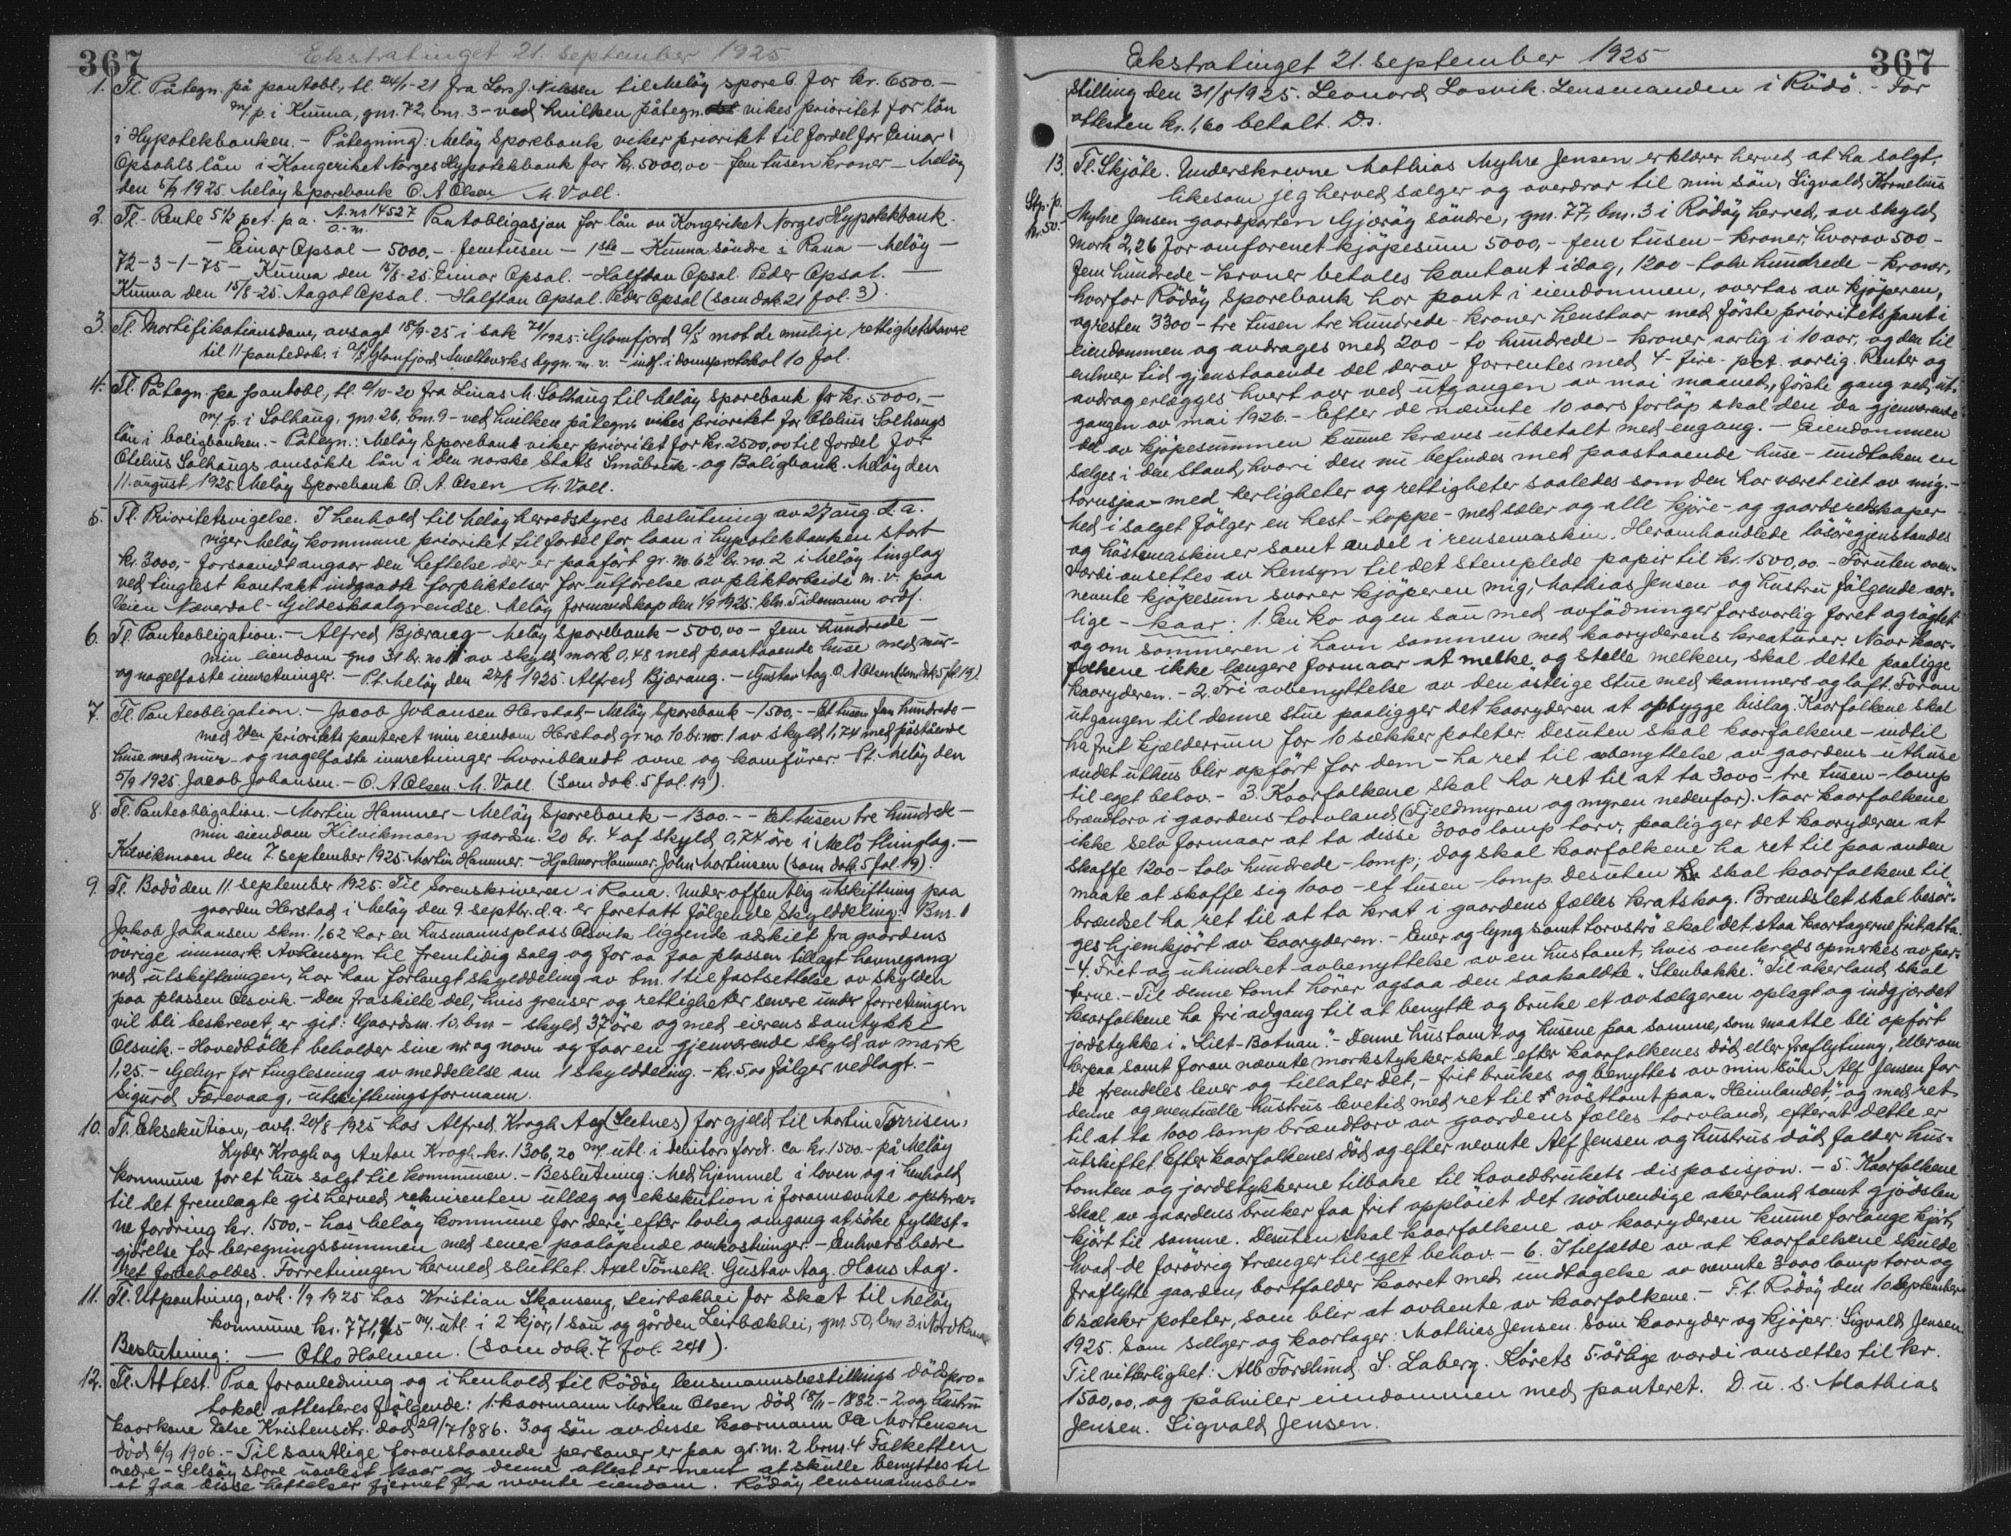 367
Ekstratinget 21. september 1925
1. Tl. Påtegn. på pantobl., tl. 24/1-21 fra Lars J. Nilssen til Meløy spareb. for kr. 6500.-
m/p. i Kunna, gnr. 72, bnr. 3 - ved hvilken påtegn. vikes prioritet for lån
i Hypotekbanken. - Påtegning: Meløy Sparebank viker prioritet til fordel for Einar
Opsahls lån i Kongeriket Norges Hypotekbank for kr. 5000,00 - fem tusen kroner - Meløy
den 1925. Meløy Sparebank O. A. Olsen M. Voll.
2. Tl. Rente 5 1/2 pct. p.a. A. nr. 14527 Pantobligasjon for lån av Kongeriket Norges Hypotekbank.
- Einar Opsal - 5000,- femtusen - 1ste - Kunna söndre i Rana - Meløy -
72-3-1-75 - Kunna den 15/8-25. Einar Opsal. - Halftan Opsal. Peder Opsal. -
Kunna den 15/8-25. Aagot Opsal. - Halftan Opsal. Peder Opsal (som dok. 21 fol. 3).
3. Tl. Mortifikationsdom, avsagt 15/9-25 i sak 1925: Glomfjord a/s mot de mulige rettighetshavere
til 11 pantedok. i a/s Glomfjord Smelteverks bygn. m. v. - indf. i domsprotokol 10 fol.
4. Tl. Påtegn. på pantobl., tl. 20 fra Linas M. Solhaug til Meløy Sparebank for kr. 5000,-
m/p. i Solhaug, gnr. 26, bnr. 9 - ved hvilken påtegn. vikes prioritet for Otelius Solhaugs
lån i boligbanken. - Påtegn.: Meløy Sparebank viker prioritet for kr. 2500,00 til fordel for
Otelius Solhaugs ansökte lån i Den norske Stats Småbruk- og Boligbank. Meløy den
11. august 1925. Meløy Sparebank O. A. Olsen M. Voll.
5. Tl. Prioritetsvigelse. I henhold til Meløy herredstyres beslutning av 27 aug. d.a.
viger Meløy kommune prioritet til fordel for laan i hypotekbanken stort
kr. 3000,- forsaavidt angaar den heftelse der er paaført gr. no. 62 br. no. 2 i Meløy tinglag
ved tinglest kontrakt indgaaatte forpliktelser for utførelse av pliktarbeide m. v. paa
Veien Næverdal - Gildeskaalgrendse. Meløy formandskap den 1/9 1925. Tidemann ordf.
6. Tl. Panteobligation. - Alfred Bjærang - Meløy Sparebank - 500,00 - fem hundrede -
min eiendom gno 31 br. no 11 av skyld mark 0,48 med paastaaende huse med mur-
og nagelfaste innretninger. - Pt. Meløy den 22/8 1925. Alfred Bjærang. - Gustav Aag. O. A. Olsen (som dok 5 fol. 19).
7. Tl. Panteobligation. - Jacob Johansen Herstad - Meløy Sparebank - 1500,- - Et tusen fem hundrede -
med 1den prioritets panteret min eiendom Herstad gr. no. 10 br. no. 1 av skyld 1,74 med påstående
huse med mur- og nagelfaste innretninger hvoriblandt ovne og komfürer. Pt. Meløy den
5/9 1925. Jacob Johansen. - O. A. Olsen. M. Voll. (Som dok. 5 fol. 19).
8. Tl. Panteobligation. - Martin Hammer - Meløy Sparebank - 1300.- - Et tusen tre hundrede -
min eiendom Kilvikmoen gaardsn. 20 br. 4 af skyld 0,74 øre i Melö thinglag. -
Kilvikmoen den 7. september 1925. Martin Hammer. - Hjalmar Hammer. John Martinsen (som dok. 5 fol. 19).
9. Tl. Bodö den 11 september 1925. Til Sorenskriveren i Rana. Under offentlig utskiftning paa
gaarden Herstad i Meløy den 9. septbr. d.a. er foretatt følgende skylddeling: Bnr. 1
Jakob Johansen skm. 1,62 har en husmannsplass Olsvik liggende adskilt fra gaardens
övrige innmark. Avhensyn til fremtidig salg og for aa faa plassen tillagt havnegang
ved utskiftningen, har han forlangt skylddeling av bnr. 1 til fastsettelse av skylden
paa plassen Olsvik. - Den fraskilte del, hvis grenser og rettigheter senere under forretningen
vil bli beskrevet, er git: Gaardsnr. 10. bnr - skyld 37 øre og med eierens samtykke
Olsvik. - Hovedböllet beholder sine nr og navn og faar en gjenværende skyld av mark
1,25 - Gebyr for tinglesning av meddelelse om 1 skylddeling. - kr. 5,00 følger vedlagt. -
Sigurd Færevaag, utskiftningsformann.
10. Tl. Eksekution, avh. 20/8 1925 hos Alfred Krogh Aag (Setnes) for gjeld til Martin Torrisen,
Lyder Krogh og Anton Krogh. kr. 1306,20 m/ utl. i debitors ford. ca kr. 1500.- på Meløy
kommune for et hus solgt til kommunen. - Beslutning: Med hjemmel i loven og i henhold
til det fremlagte gis herved rekvirenten utlæg og eksekution i forannævnte opskrev-
ne fordring kr. 1500,- hos Meløy kommune for deri efter lovlig omgang at söke fyldest-
gjørelse for beregningssummen med senere paaløpende omkostninger. - Enhvers bedre
ret forbeholdes. Forretningen hermed sluttet. Axel Tönseth. Gustav Aag. Hans Aag.
11. Tl. Utpantning, avh. 1/9 1925 hos Kristian Skauseng, Leirbækhei for skat til Meløy
kommune kr. 771,45 m/ utl. i 2 kjør, 1 sau og gården Leirbækhei, gnr. 50, bnr. 3 i Nord
Beslutning: - Otto Holmen. (som dok. 7 fol. 241).
12. Tl. Attest. Paa foranledning og i henhold til Rödöy lensmannsbestillings dödspro-
tokol attesteres følgende: 1. kaarmann Morten Olsen död 18/11-1882. - 2. og hustru
kaarkone Else Kristensdtr. död 29/7 1886. 3. og sön av disse kaarmann Ole Mortensen
död 6/9 1906. - Til samtlige foranstaaende personer er paa gr. nr. 2 brnr. 4 Falketten
nedre - Selsöy store uavlest kaar og denne attest er ment at skulle benyttes til
at faa disse heftelser fjernet fra nevnte eiendom. Rödöy lensmannsbe-
367
Ekstratinget 21. september 1925
stilling den 31/8 1925. Leonard Losvik. Lensmanden i Rödö. - For
attesten kr. 1,60 betalt. Ds.
13. Tl. Skjöte. Underskrevne Mathias Myhre Jensen erklærer herved at ha solgt,
Stp. p. kr. 50.-
likesom jeg herved sælger og overdrar til min sön, Sigvald Kornelius
Myhre Jensen gaardparten Gjæröy söndre, gnr. 77, bnr. 3 i Rödöy herred, av skyld
mark 2,26 for omforenet kjöpesum 5000,- fem tusen - kroner, hvorav 500,-
fem hundrede - kroner betales kontant idag, 1200 - tolv hundrede - kroner,
hvorfor Rödöy Sparebank har pant i eiendommen, overtas av kjöperen,
og resten 3300 - tre tusen tre hundrede - kroner henstaar med förste prioritets pant i
eiendommen og avdrages med 200 - to hundrede - kroner aarlig i 10 aar, og den til
enhver tid gjenstaaende del derav forrentes med 4 - fire - pct. aarlig. Renter og
avdrag erlægges hvert aar ved utgangen av mai maaned, förste gang ved ut-
gangen av mai 1926. - Efter de nævnte 10 aars forlöp skal den da gjenværende
del av kjöpesummen kunne kræves utbetalt med engang. - Eiendommen
sælges i den stand, hvori den nu befindes med paastaaende huse - undtaken en
torvsjaa - med herligheter og rettigheter saaledes som den har været eiet av mig. -
Med i salget fölger en hest - hoppe - med sæler og alle kjöre- og gaardsredskaper
og höstemaskiner samt andel i rensemaskin. Heromhandlede lösöregjenstandes
værdi ansettes av hensyn til det stemplede papir til kr. 1500,00. - Foruten oven-
nevnte kjöpesum svarer kjöperen mig, Mathias Jensen og hustru fölgende aar-
lige - kaar: 1. En ko og en sau med avfödninger forsvarlig foret og röktet
og om sommeren i havn sammen med kaaryderens kreaturer. Naar kaar-
folkene ikke længere formaar at melke og stelle melken, skal dette paaligge
kaaryderen. - 2. Fri avbenyttelse av den östlige stue med kammers og loft. Foran
utgangen til denne stue paaligger det kaaryderen at opbygge bislag. Kaarfolkene skal
ha frit kjælderrum for 10 sækker poteter. Desuten skal kaarfolkene - indtil
andet uthus blir opfört for dem - ha ret til avbenyttelse av gaardens uthuse
til eget behov. - 3. Kaarfolkene skal ha ret til at ta 3000 - tre tusen - lamp
brændtorv i gaardens torvland (Fjeldmyren og myren nedenfor). Naar kaarfolkene
ikke selv formaar at ta disse 3000 lamp torv, paaligger det kaaryderen at
skaffe 1200 - tolv hundrede - lamp; dog skal kaarfolkene ha ret til paa anden
maate at skaffe sig 1000 - et tusen - lamp. Desuten skal kaarfolkene til
brændsel ha ret til at ta krat i gaardens fælles kratskog. Brændslet skal besör-
ges hjemkjört av kaaryderen. - Ener og lyng samt torvströ skal det staa kaartagerne frit at ta.
- 4. Frit og uhindret avbenyttelse av en hustomt, hvis omkreds opmerkes av par-
terne. - Til denne tomt hörer ogsaa den saakaldte "Stenbakke". Til akerland skal
kaarfolkene ha fri adgang til at benytte og bruke et av sælgeren oplagt og indgjærdet
jordstykke i "Litl-Botnan". - Denne hustomt og husene paa samme, som maatte bli opfört
herpaa samt foran nævnte markstykker skal efter kaarfolkenes död eller fraflytning, eller om
de fremdeles lever og tillater det, - frit brukes og benyttes av min sön Alf Jensen for
denne og eventuelle hustrus levetid med ret til nösttomt paa "Heimlandet", og med ret
til at ta 1000 lamp brændtorv av gaardens fælles torvland, efterat dette er
utskiftet. Efter kaarfolkenes död og efter nevnte Alf Jensen og hustrus död falder hus-
tomten og jordstykkerne tilbake til hovedbrukets disposisjon. - 5. Kaarfolkene
skal av gaardens bruker faa frit opplöiet det nödvendige akerland samt gjödslen
kjört til samme. Desuten skal kaarfolkene av kaaryderen kunne forlange kjört,
hvad de forövrig trænger til eget behov. - 6. I tilfælde av at kaarfolkene skulde
fraflytte gaarden, bortfalder kaaret med undtagelse av nevnte 3000 lamp torv og
6 sækker poteter, som blir at avhente av kaarfolkene. - F.t. Rödöy den 10 September
1925. Som selger og kaartager: Mathias Jensen. Som kaaryder og kjöper: Sigvald Jensen.
Til vitterlighet: Alb. Forslund. S. Laberg. Kårets 5-årlige værdi ansættes til kr.
1500,00, og påhviler eiendommen med panteret. D. u. s. Mathias
Jensen. Sigvald Jensen.